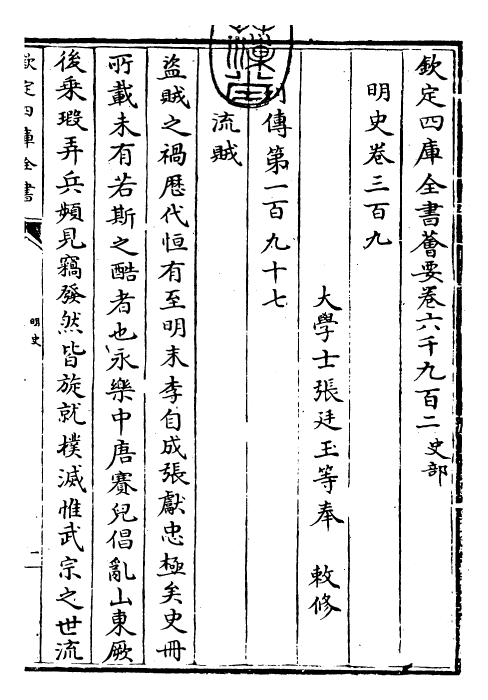 欽定四庫全書薈要卷六千九百二 史部
明史卷三百九
大學士張廷玉等奉 敕修
列傳第一百九十七
流賊
盜賊之禍歴代恒有至明末李自成張獻忠極矣史冊
所載未有若斯之酷者也永樂中唐賽兒倡亂山東厥
後乘瑕弄兵頻見竊發然皆旋就撲滅惟武宗之世流
欽定四庫全書
明史